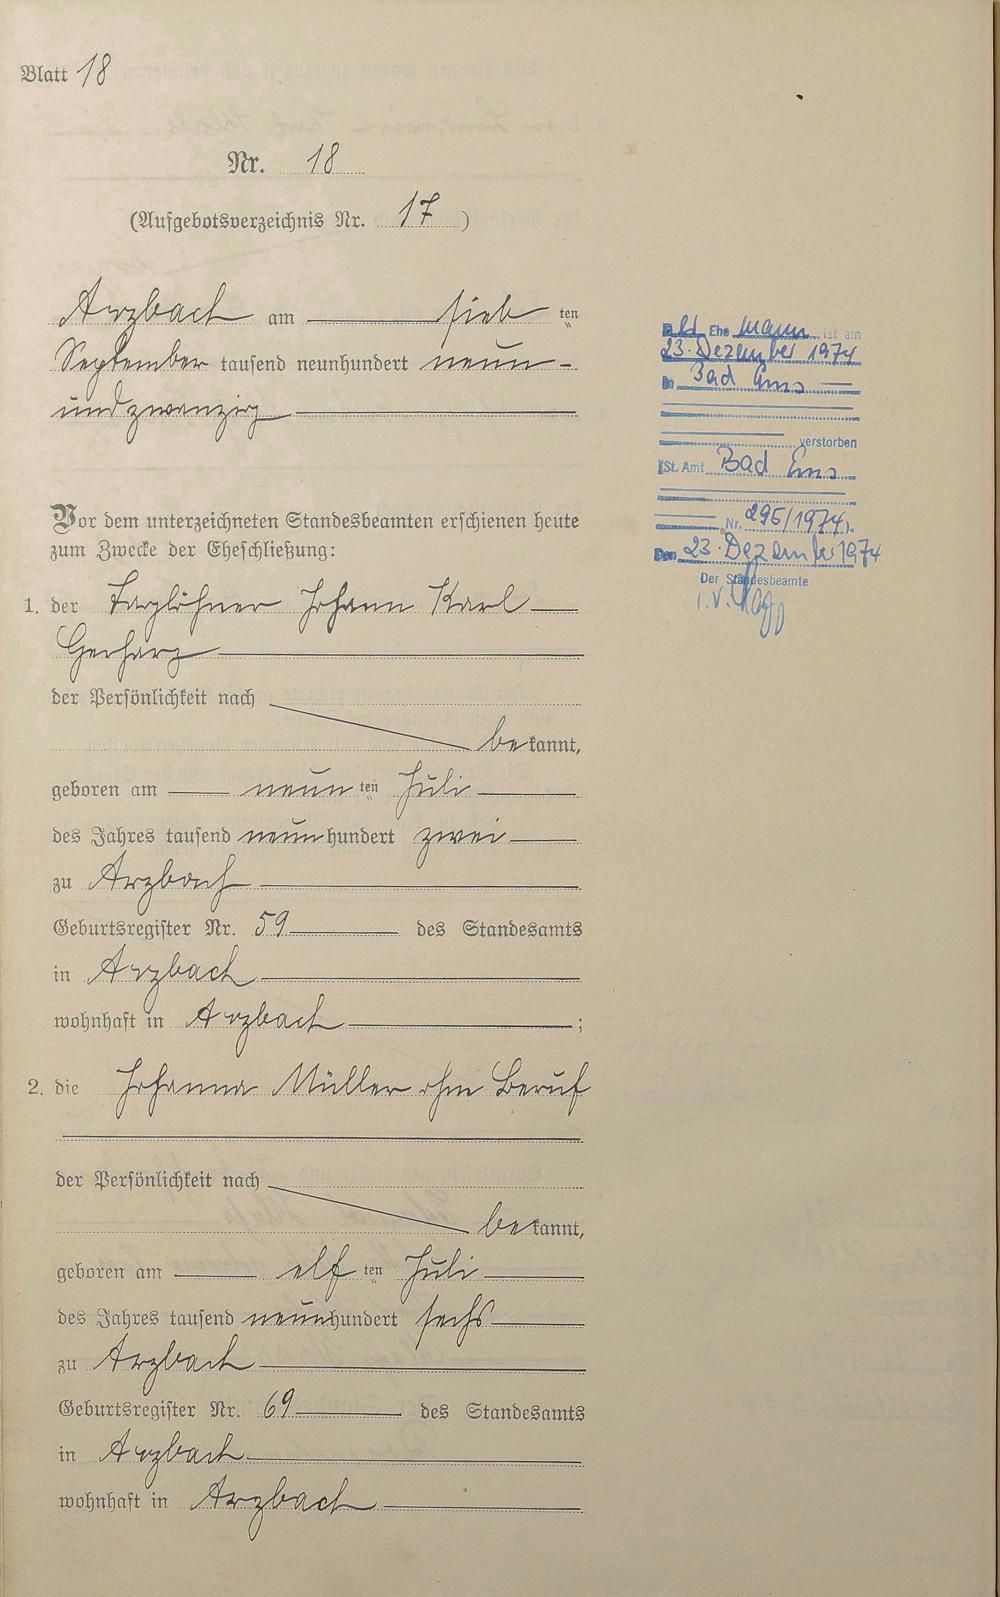 Blatt 18
Nr. 18
(Aufgebotsverzeichnis Nr. 17)
Arzbach am sieb ten
September tausend neunhundert neun-
und zwanzig
Vor dem unterzeichneten Standesbeamten erschienen heute
zum Zwecke der Eheschließung:
1. der Taglöhner Johann Karl
Gerharz
der Persönlichkeit nach
bekannt,
geboren am neun ten Juli
des Jahres tausend neunhundert zwei
zu Arzbach
Geburtsregister Nr. 59 des Standesamts
in Arzbach
wohnhaft in Arzbach ;
2. die Johanna Müller ohne Beruf
der Persönlichkeit nach
bekannt,
geboren am elf ten Juli
des Jahres tausend neunhundert sechs
zu Arzbach
Geburtsregister Nr. 69 des Standesamts
in Arzbach
wohnhaft in Arzbach
Der Ehemann ist am
23. Dezember 1974
in Bad Ems
verstorben
(St. Amt Bad Ems
Nr. 295/1974).
Den 23. Dezember 1974
Der Standesbeamte
i.V.